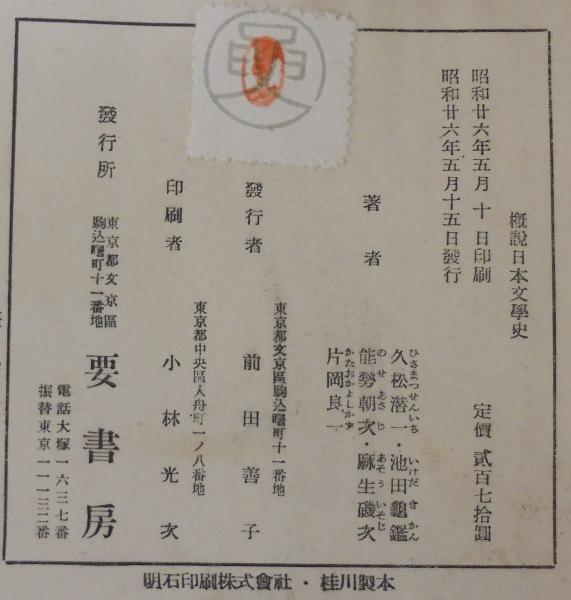 概說日本文學史
定價 貳百七拾圓
昭和廿六年五月 十 日印刷
昭和廿六年五月十五日發行
著者
久松潜一・池田龜鑑
ひさまつせんいち いけだ きかん
能勢朝次・麻生磯次
のせ あさじ あそう いそじ
片岡良一
かたおかよしかず
發行者
東京都文京區駒込曙町十一番地
前田善子
印刷者
東京都中央區入舟町一ノ八番地
小林光次
發行所
東京都文京區
駒込曙町十一番地
要書房
電話大塚一六三七番
振替東京一一一三二番
明石印刷株式會社・桂川製本